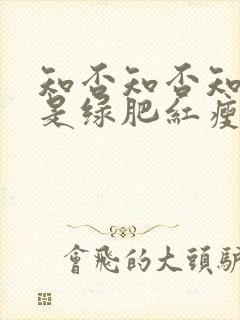 知否知否知
是绿肥红瘦
會飛的大頭驴